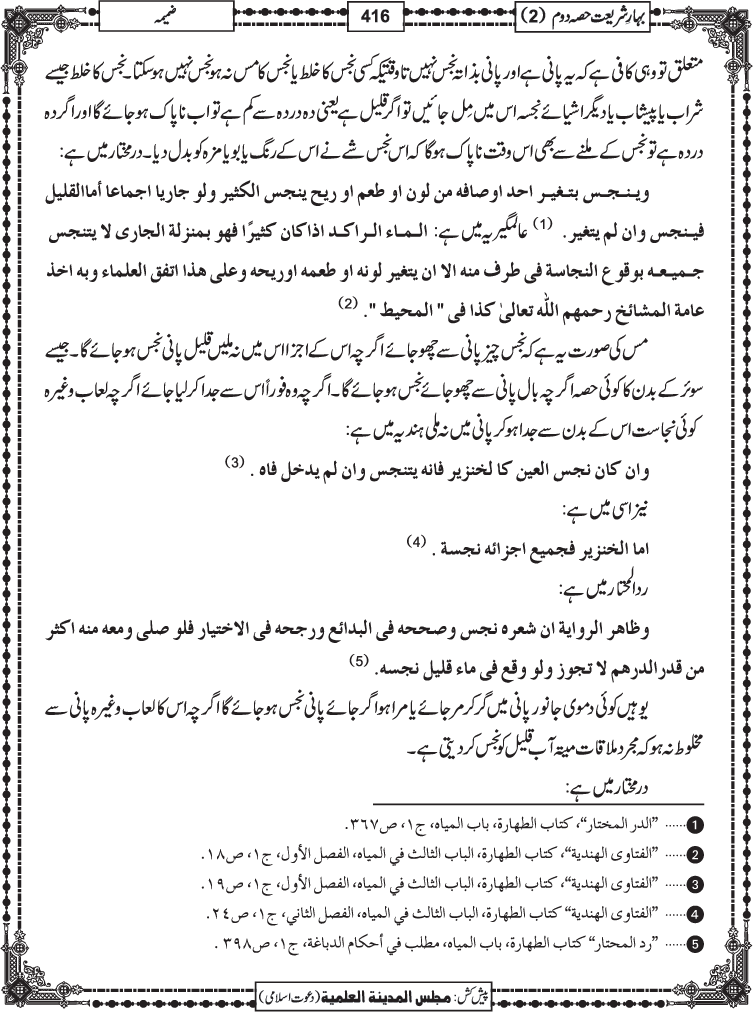 بہارِ شریعت حصہ دوم (2)
416
ضمیمہ
متعلق تو وہی کافی ہے کہ یہ پانی ہے اور پانی بذاتہ نجس نہیں تاوقتیکہ کسی نجس کا خلط یا نجس کا مس نہ ہو نجس نہیں ہوسکتا۔ نجس کا خلط جیسے
شراب یا پیشاب یا دیگر اشیائے نجسہ اس میں مِل جائیں تو اگر قلیل ہے یعنی دہ در دہ سے کم ہے تو اب ناپاک ہو جائے گا اور اگر دہ
در دہ ہے تو نجس کے ملنے سے بھی اس وقت ناپاک ہوگا کہ اس نجس شے نے اس کے رنگ یا بو یا مزہ کو بدل دیا۔ درمختار میں ہے:
وینجس بتغیر احد اوصافه من لون او طعم او ریح ینجس الکثیر ولو جاریا اجماعا أماالقلیل
فینجس وان لم یتغیر. (1) عالمگیریہ میں ہے: الماء الراکد اذاکان کثیرًا فهو بمنزلة الجاری لا یتنجس
جمیعه بوقوع النجاسة فی طرف منه الا ان یتغیر لونه او طعمه اوریحه وعلی هذا اتفق العلماء وبه اخذ
عامة المشائخ رحمهم اللّٰه تعالیٰ کذا فی " المحیط ". (2)
مس کی صورت یہ ہے کہ نجس چیز پانی سے چھو جائے اگر چہ اس کے اجزا اس میں نہ ملیں قلیل پانی نجس ہو جائے گا۔ جیسے
سوئر کے بدن کا کوئی حصہ اگر چہ بال پانی سے چھو جائے نجس ہو جائے گا۔ اگر چہ وہ فوراً اس سے جدا کر لیا جائے اگر چہ لعاب وغیرہ
کوئی نجاست اس کے بدن سے جدا ہوکر پانی میں نہ ملی ہندیہ میں ہے:
وان کان نجس العین کا لخنزیر فانه یتنجس وان لم یدخل فاه . (3)
نیز اسی میں ہے:
اما الخنزیر فجمیع اجزائه نجسة . (4)
ردالمحتار میں ہے:
وظاهر الروایة ان شعره نجس وصححه فی البدائع ورجحه فی الاختیار فلو صلی ومعه منه اکثر
من قدرالدرهم لا تجوز ولو وقع فی ماء قلیل نجسه. (5)
یوہیں کوئی دموی جانور پانی میں گر کر مر جائے یا مرا ہوا گر جائے پانی نجس ہو جائے گا اگر چہ اس کا لعاب وغیرہ پانی سے
مخلوط نہ ہو کہ مجرد ملاقات میتہ آب قلیل کو نجس کر دیتی ہے۔
درمختار میں ہے:
1 ...... "الدر المختار"، کتاب الطهارة، باب المیاه، ج١، ص٣٦٧.
2 ...... "الفتاوی الهندیة"، کتاب الطهارة، الباب الثالث في المیاه، الفصل الأول، ج١، ص١٨.
3 ...... "الفتاوی الهندیة"، کتاب الطهارة، الباب الثالث في المیاه، الفصل الأول، ج١، ص١٩.
4 ...... "الفتاوی الهندیة" کتاب الطهارة، الباب الثالث في المیاه، الفصل الثاني، ج١، ص٢٤.
5 ...... "رد المحتار" کتاب الطهارة، باب المیاه، مطلب في أحکام الدباغة، ج١، ص٣٩٨ .
پیش کش: مجلس المدینة العلمیة (دعوت اسلامی)